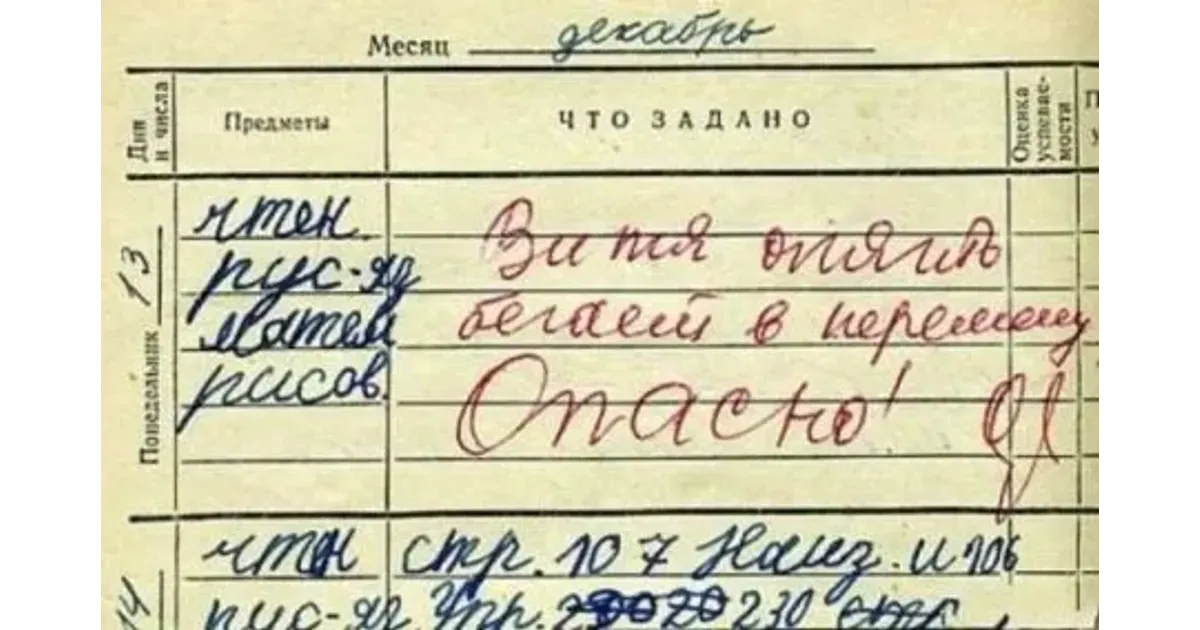 Месяц декабрь
Дни и числа
Предметы
ЧТО ЗАДАНО
Оценка успеваемости
Понедельник 13
чтен.
рус-яз
матем
рисов.
Витя опять
бегает в перемену
Опасно!
чтен стр. 107 Наиз. и 106
14
рус-яз Упр. 230